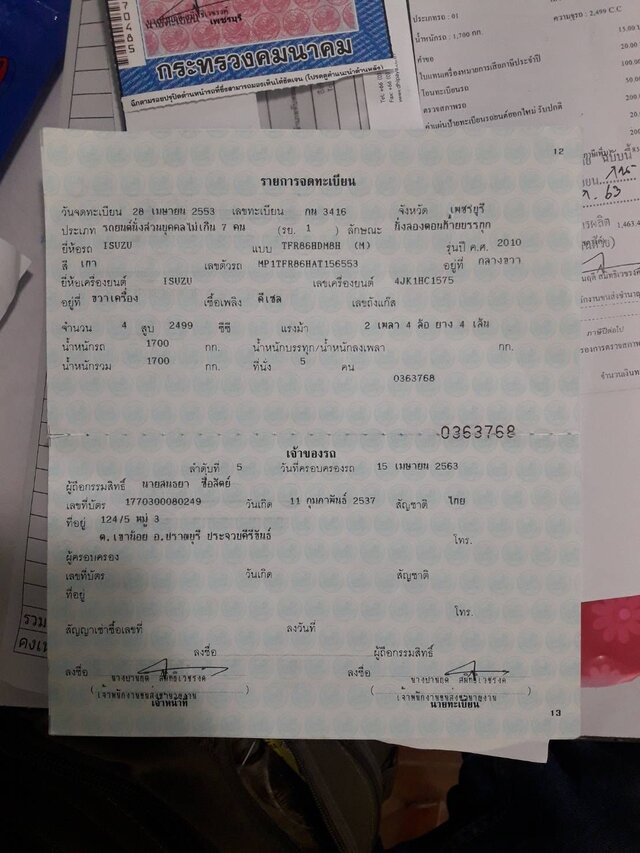 70485
ทะเบียน เพชรบุรี
กระทรวงคมนาคม
ประเภทรถ : 01 ความจุรถ : 2,499 C.C
น้ำหนักรถ : 1,700 กก.
ค่าขอ
ใบแทนเครื่องหมายการเสียภาษีประจำปี
โอนทะเบียน
ตรวจสภาพรถ
12
รายการจดทะเบียน
วันจดทะเบียน 28 เมษายน 2553 เลขทะเบียน กน 3416 จังหวัด เพชรบุรี
ประเภท รถยนต์นั่งส่วนบุคคลไม่เกิน 7 คน (รย. 1 ) ลักษณะ นั่งสองตอนท้ายบรรทุก
ยี่ห้อรถ ISUZU แบบ TFR86HDM8H (M) รุ่นปี ค.ศ. 2010
สี เทา เลขตัวรถ MP1TFR86HAT156553 อยู่ที่ กลางขวา
ยี่ห้อเครื่องยนต์ ISUZU เลขเครื่องยนต์ 4JK1HC1575
อยู่ที่ ขวาเครื่อง เชื้อเพลิง ดีเซล เลขถังแก๊ส
จำนวน 4 สูบ 2499 ซีซี แรงม้า 2 เพลา 4 ล้อ ยาง 4 เส้น
น้ำหนักรถ 1700 กก. น้ำหนักบรรทุก/น้ำหนักลงเพลา กก.
น้ำหนักรวม 1700 กก. ที่นั่ง 5 คน
0363768
0363768
เจ้าของรถ
ลำดับที่ 5 วันที่ครอบครองรถ 15 เมษายน 2563
ผู้ถือกรรมสิทธิ์ นายสนธยา ซื่อสัตย์
เลขที่บัตร 1770300080249 วันเกิด 11 กุมภาพันธ์ 2537 สัญชาติ ไทย
ที่อยู่ 124/5 หมู่ 3
ต.เขาน้อย อ.ปราณบุรี ประจวบคีรีขันธ์ โทร.
ผู้ครอบครอง
เลขที่บัตร วันเกิด สัญชาติ
ที่อยู่
โทร.
สัญญาเช่าซื้อเลขที่ ลงวันที่
ลงชื่อ ผู้ถือกรรมสิทธิ์
ลงชื่อ ลงชื่อ
เจ้าหน้าที่ นายทะเบียน
13